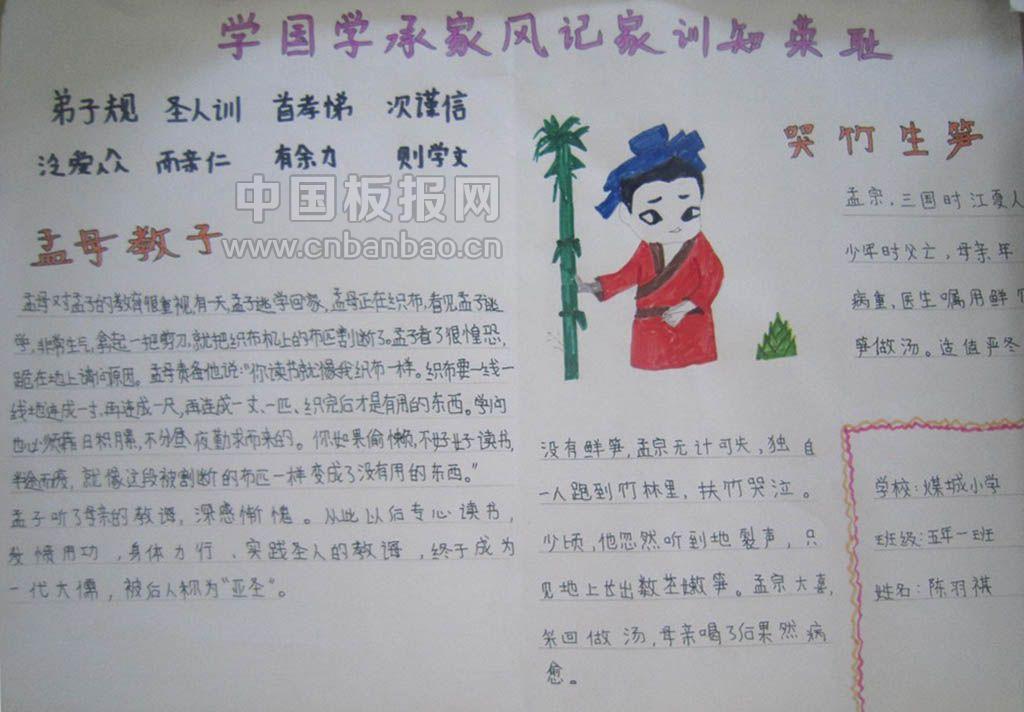 学国学承家风记家训知荣耻
弟子规 圣人训 首孝悌 次谨信
泛爱众 而亲仁 有余力 则学文
中国板报网
www.cnbanbao.cn
孟母教子
孟母对孟子的教育很重视,有一天孟子逃学回家,孟母正在织布,看见孟子逃
学,非常生气,拿起一把剪刀,就把织布机上的布匹割断了。孟子看了很惶恐,
跪在地上请问原因。孟母责备他说:“你读书就像我织布一样。织布要一线一
线地连成一寸,再连成一尺,再连成一丈、一匹、织完后才是有用的东西。学问
也必须靠日积月累,不分昼夜勤求而来的。你如果偷懒,不好好读书,
半途而废,就像这段被割断的布匹一样变成了没有用的东西。”
孟子听了母亲的教诲,深感惭愧。从此以后专心读书,
发愤用功,身体力行、实践圣人的教诲,终于成为
一代大儒,被后人称为“亚圣”。
哭竹生笋
孟宗,三国时江夏人
少年时父亡,母亲年
病重,医生嘱用鲜竹
笋做汤。适值严冬
没有鲜笋,孟宗无计可失,独自
一人跑到竹林里,扶竹哭泣。
少顷,他忽然听到地裂声,只
见地上长出数茎嫩笋。孟宗大喜,
采回做汤,母亲喝了后果然病
愈。
学校:煤城小学
班级:五年一班
姓名:陈羽祺